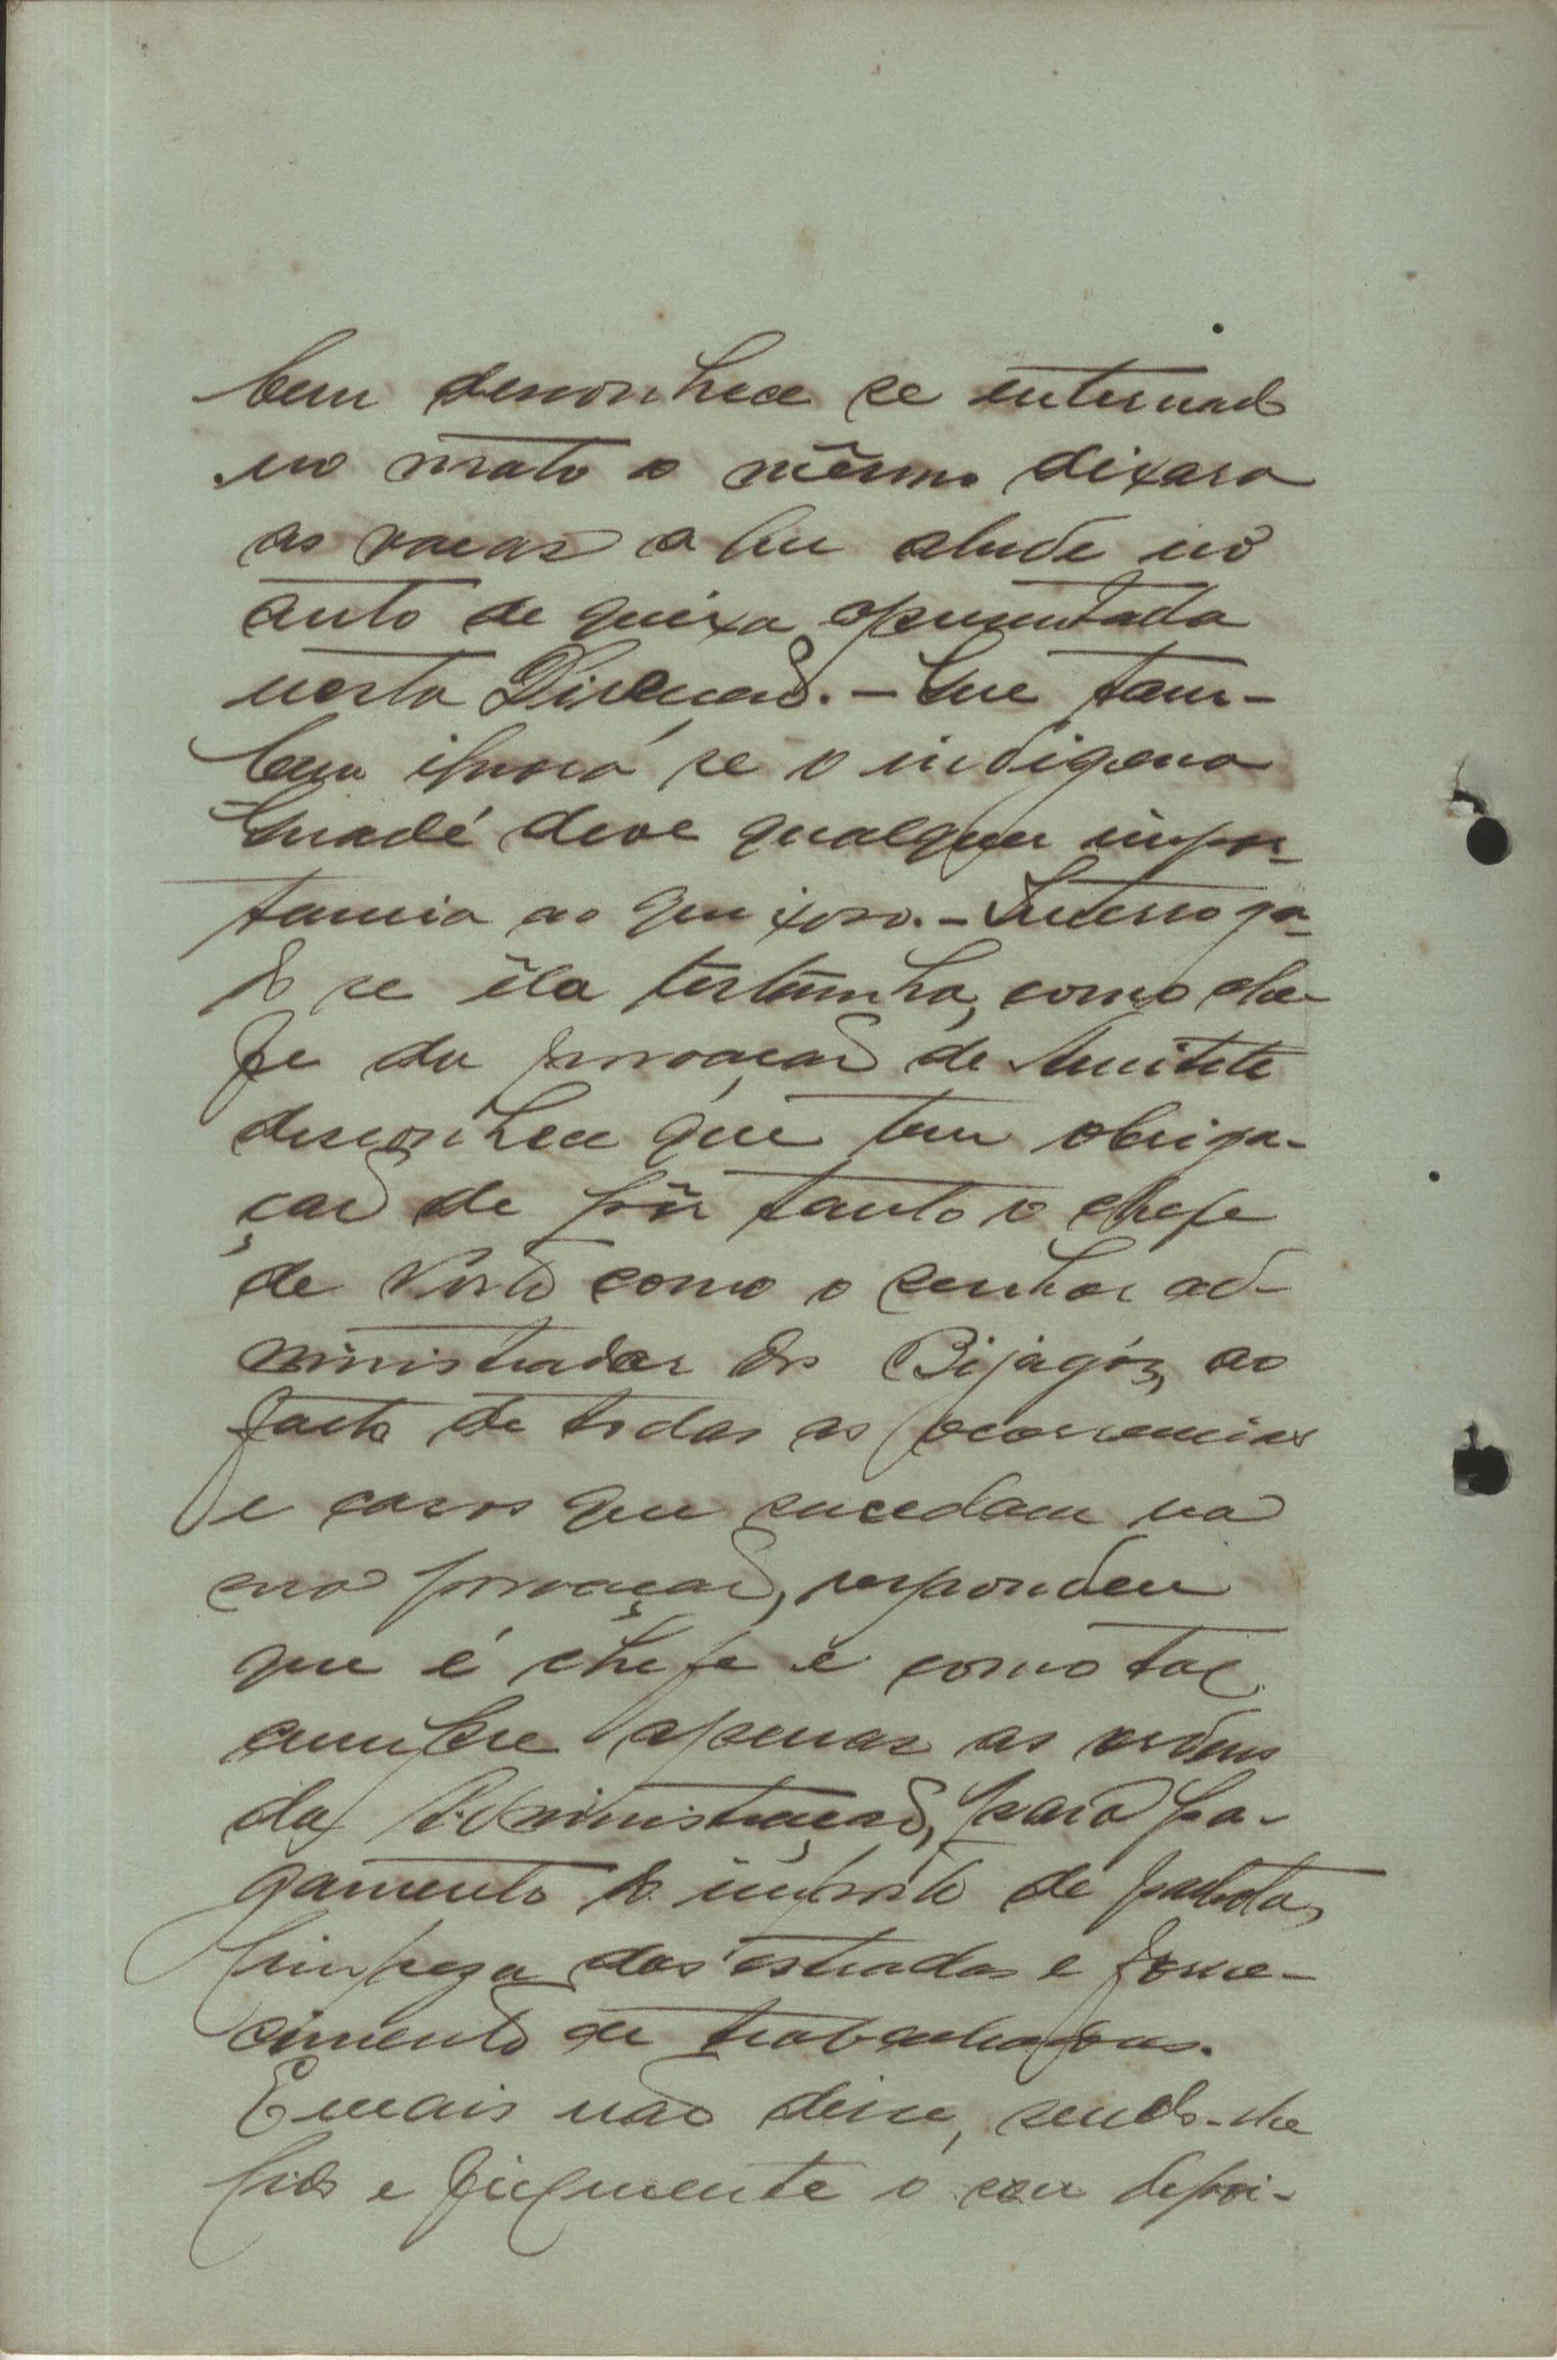 bem desconhece se internado
no mato o mêsmo dixara
as vacas a que alude no
auto de queixa apresentada
nesta Direcção. - Que tam-
bem ignora se o indigena
deve qualquer impor-
tancia ao queixoso. - Interroga-
do se êla testêmunha, como che-
fe da povoação de
desconhece que tem obriga-
ção de pôr tanto o chefe
de Posto como o senhor ad-
ministrador dos Bijagóz, ao
facto de todas as ocorrencias
e casos que sucedam na
sua povoação, respondeu
que é chefe e como tal
cumpre apenas as ordens
da Administração, para pa-
gamento do imposto de palhota,
limpeza das estradas e forne-
cimento de trabalhadores.
E mais não disse, sendo-lhe
lido e fielmente o seu depoi-